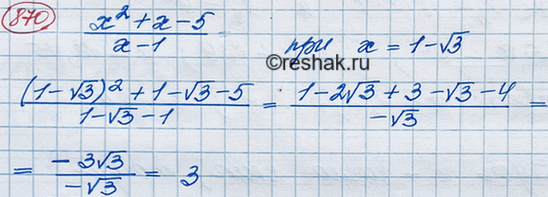 870
(x² + x − 5)/(x − 1) при x = 1 − √3
reshak.ru
((1 − √3)² + 1 − √3 − 5)/(1 − √3 − 1) = (1 − 2√3 + 3 − √3 − 4)/(−√3) =
= (−3√3)/(−√3) = 3